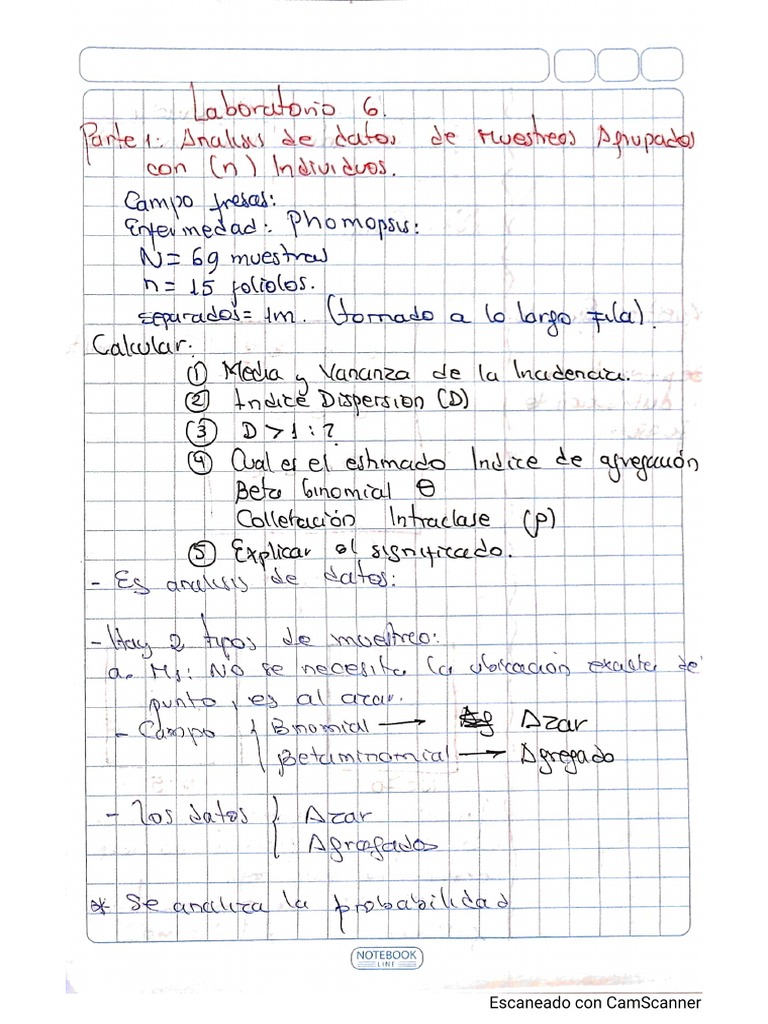 Laboratorio 6.
Parte 1: Analisis de datos de muestreos Agrupados
con (n) Individuos.
Campo fresas:
Enfermedad: Phomopsis:
N = 69 muestras
n = 15 foliolos.
separados = 1m. (tomado a lo largo fila).
Calcular:
① Media y Varianza de la Incidencia.
② Indice Dispersion (D)
③ D > 1 : ?
④ Cual es el estimado Indice de agregación
Beta binomial θ
Colletación Intraclase (p)
⑤ Explicar el significado.
- Es analisis de datos:
- Hay 2 tipos de muestreo:
a. Ms: No se necesita la ubicación exacta de
punto, es al azar.
- Campo { Binomial → Azar
Betaminomial → Agregado
- los datos } Azar
Agregados
* Se analiza la probabilidad
NOTEBOOK
LINE
Escaneado con CamScanner